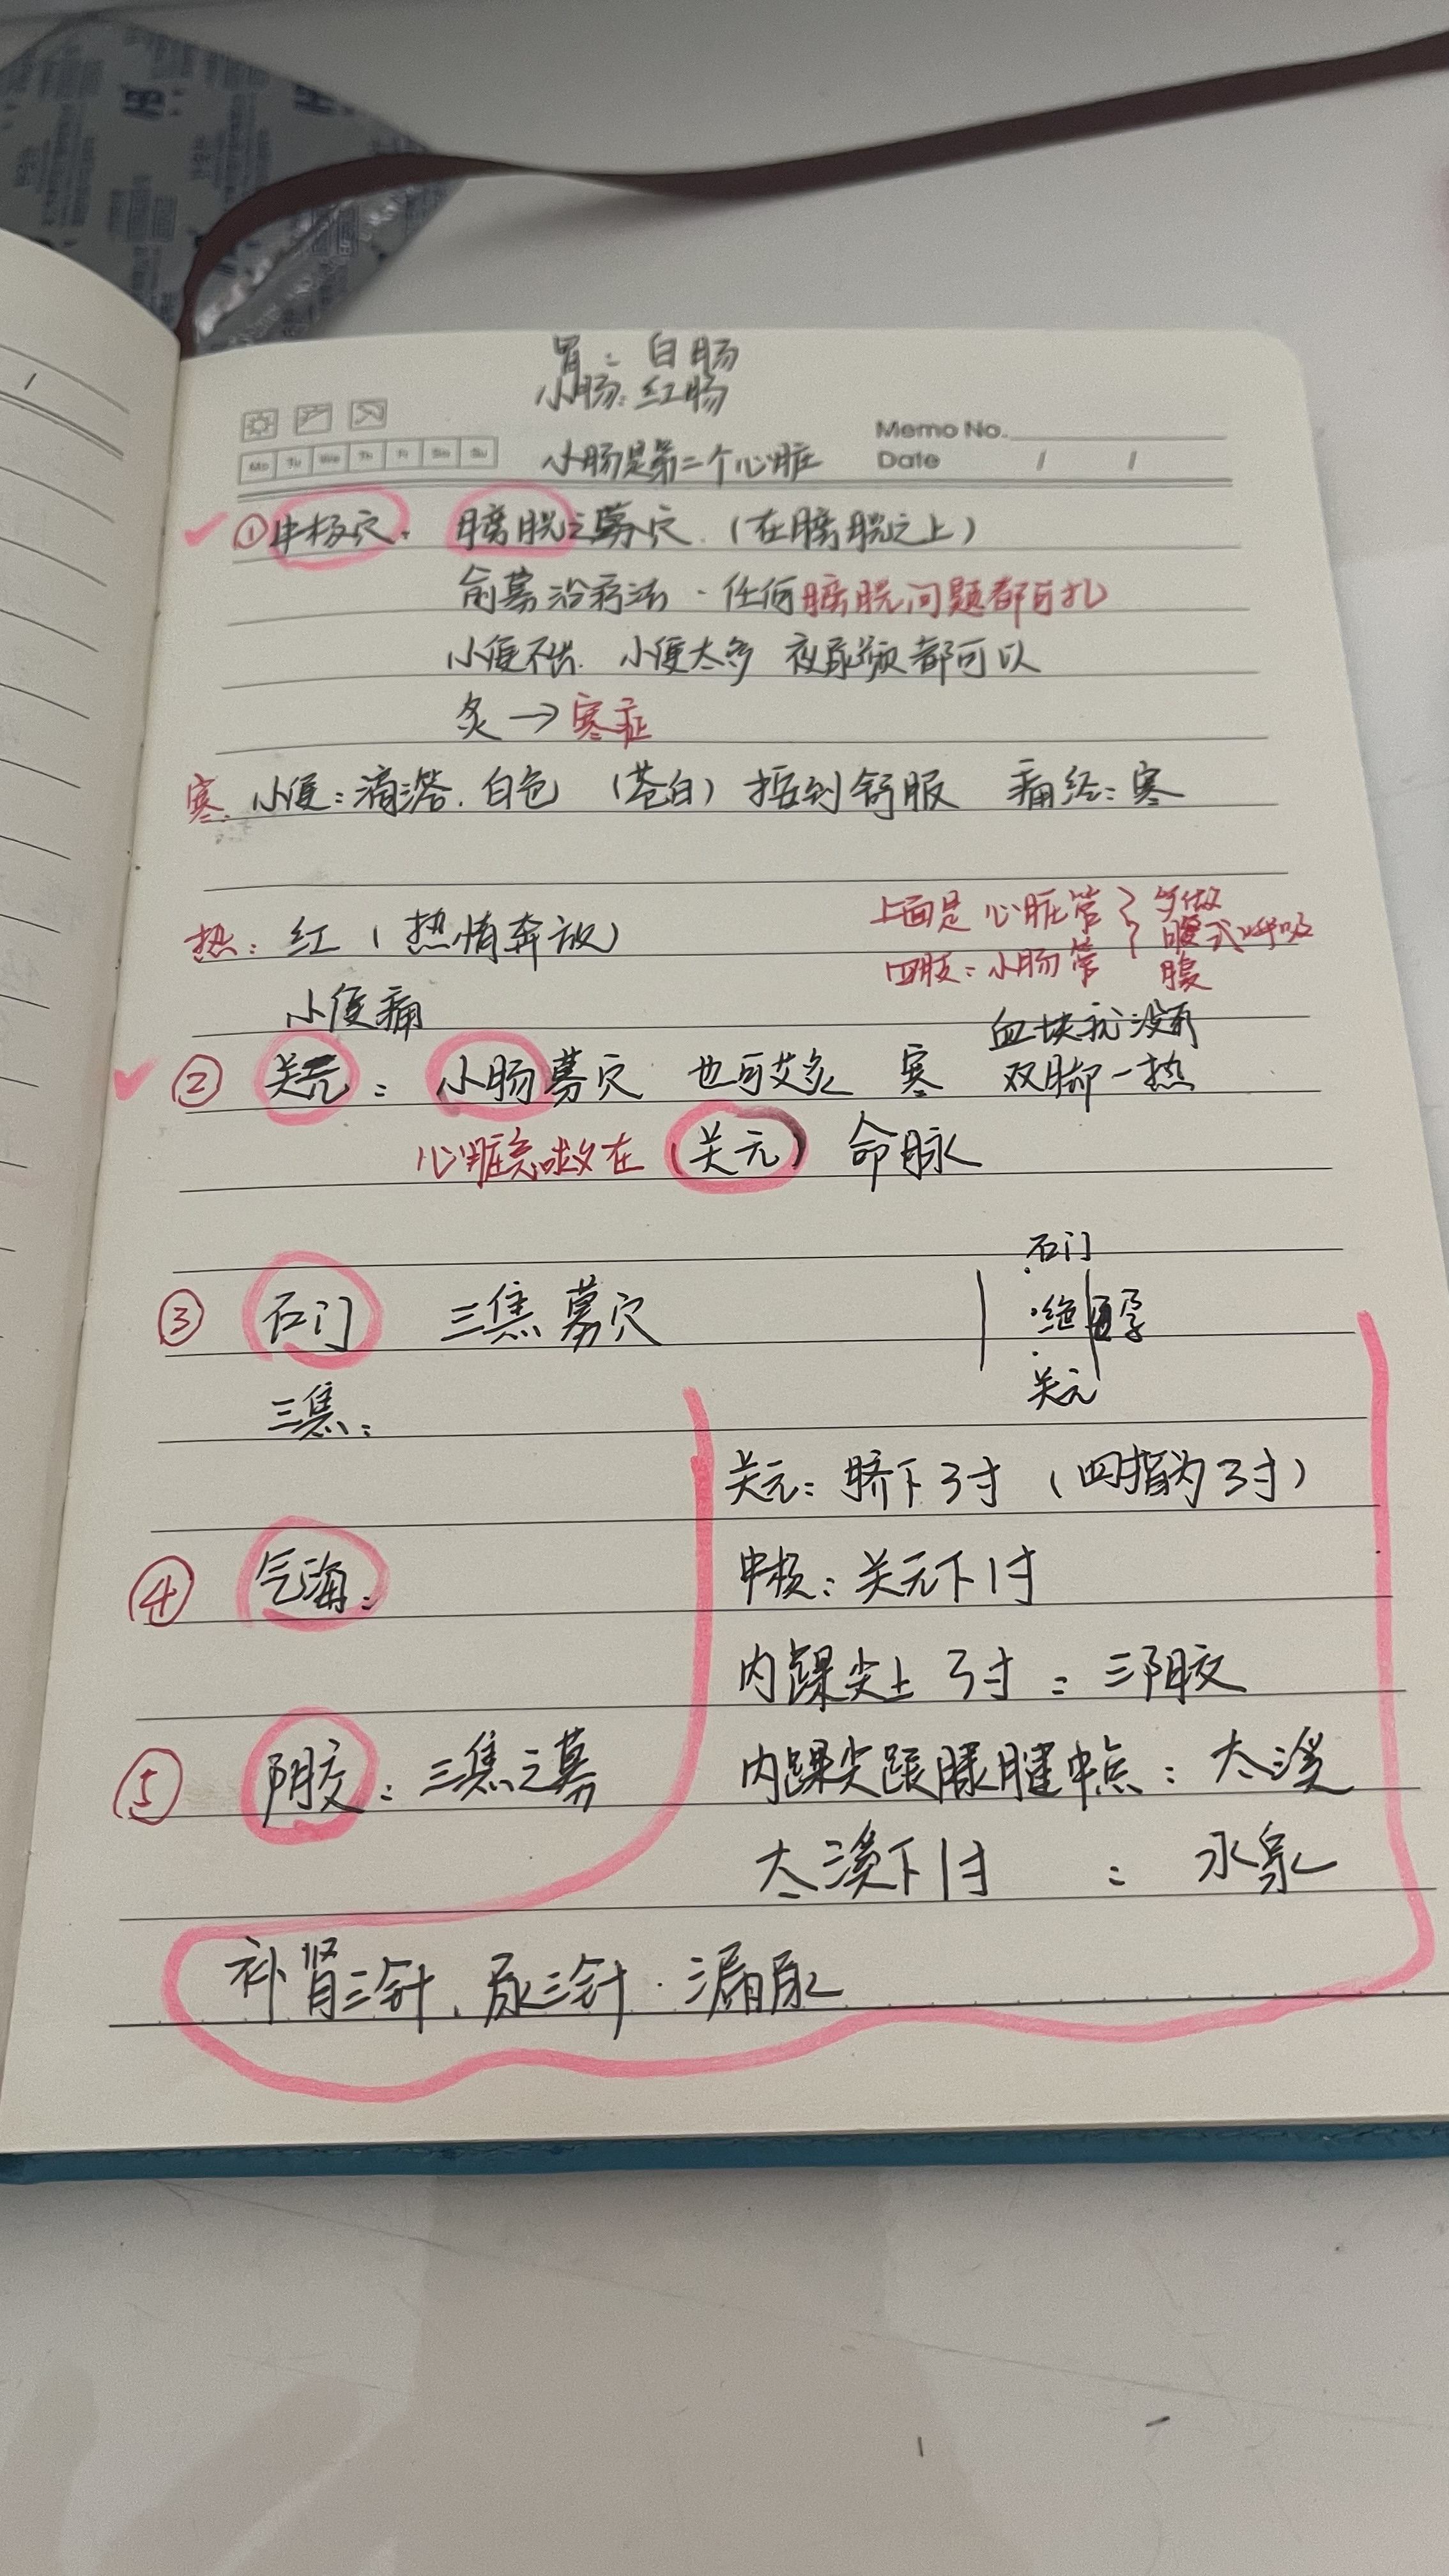 胃：白肠
小肠：红肠
Memo No.
Mo Tu We Th Fr Sa Su
小肠是第二个心脏
Date / /
①中极穴. 膀胱之募穴.（在膀胱之上）
俞募治疗法. 任何膀胱问题都可扎
小便不出. 小便太多 夜尿频都可以
灸→寒症
寒. 小便：滴答. 白色（苍白）按到舒服 痛经：寒
热：红（热情奔放）
上面是 心脏管
四肢：小肠管
多做
腹式呼吸
腹
小便痛
血块就没有
② 关元：小肠募穴 也可艾灸 寒 双脚一热
心脏衰竭在（关元）命脉
石门
③ 石门 三焦募穴
绝孕
关元
三焦：
关元：脐下3寸（四指为3寸）
④ 气海：
中极：关元下1寸
内踝尖上3寸：三阴交
⑤ 阴交：三焦之募
内踝尖跟腱中点：太溪
太溪下1寸：水泉
补肾三针、尿三针. 漏尿